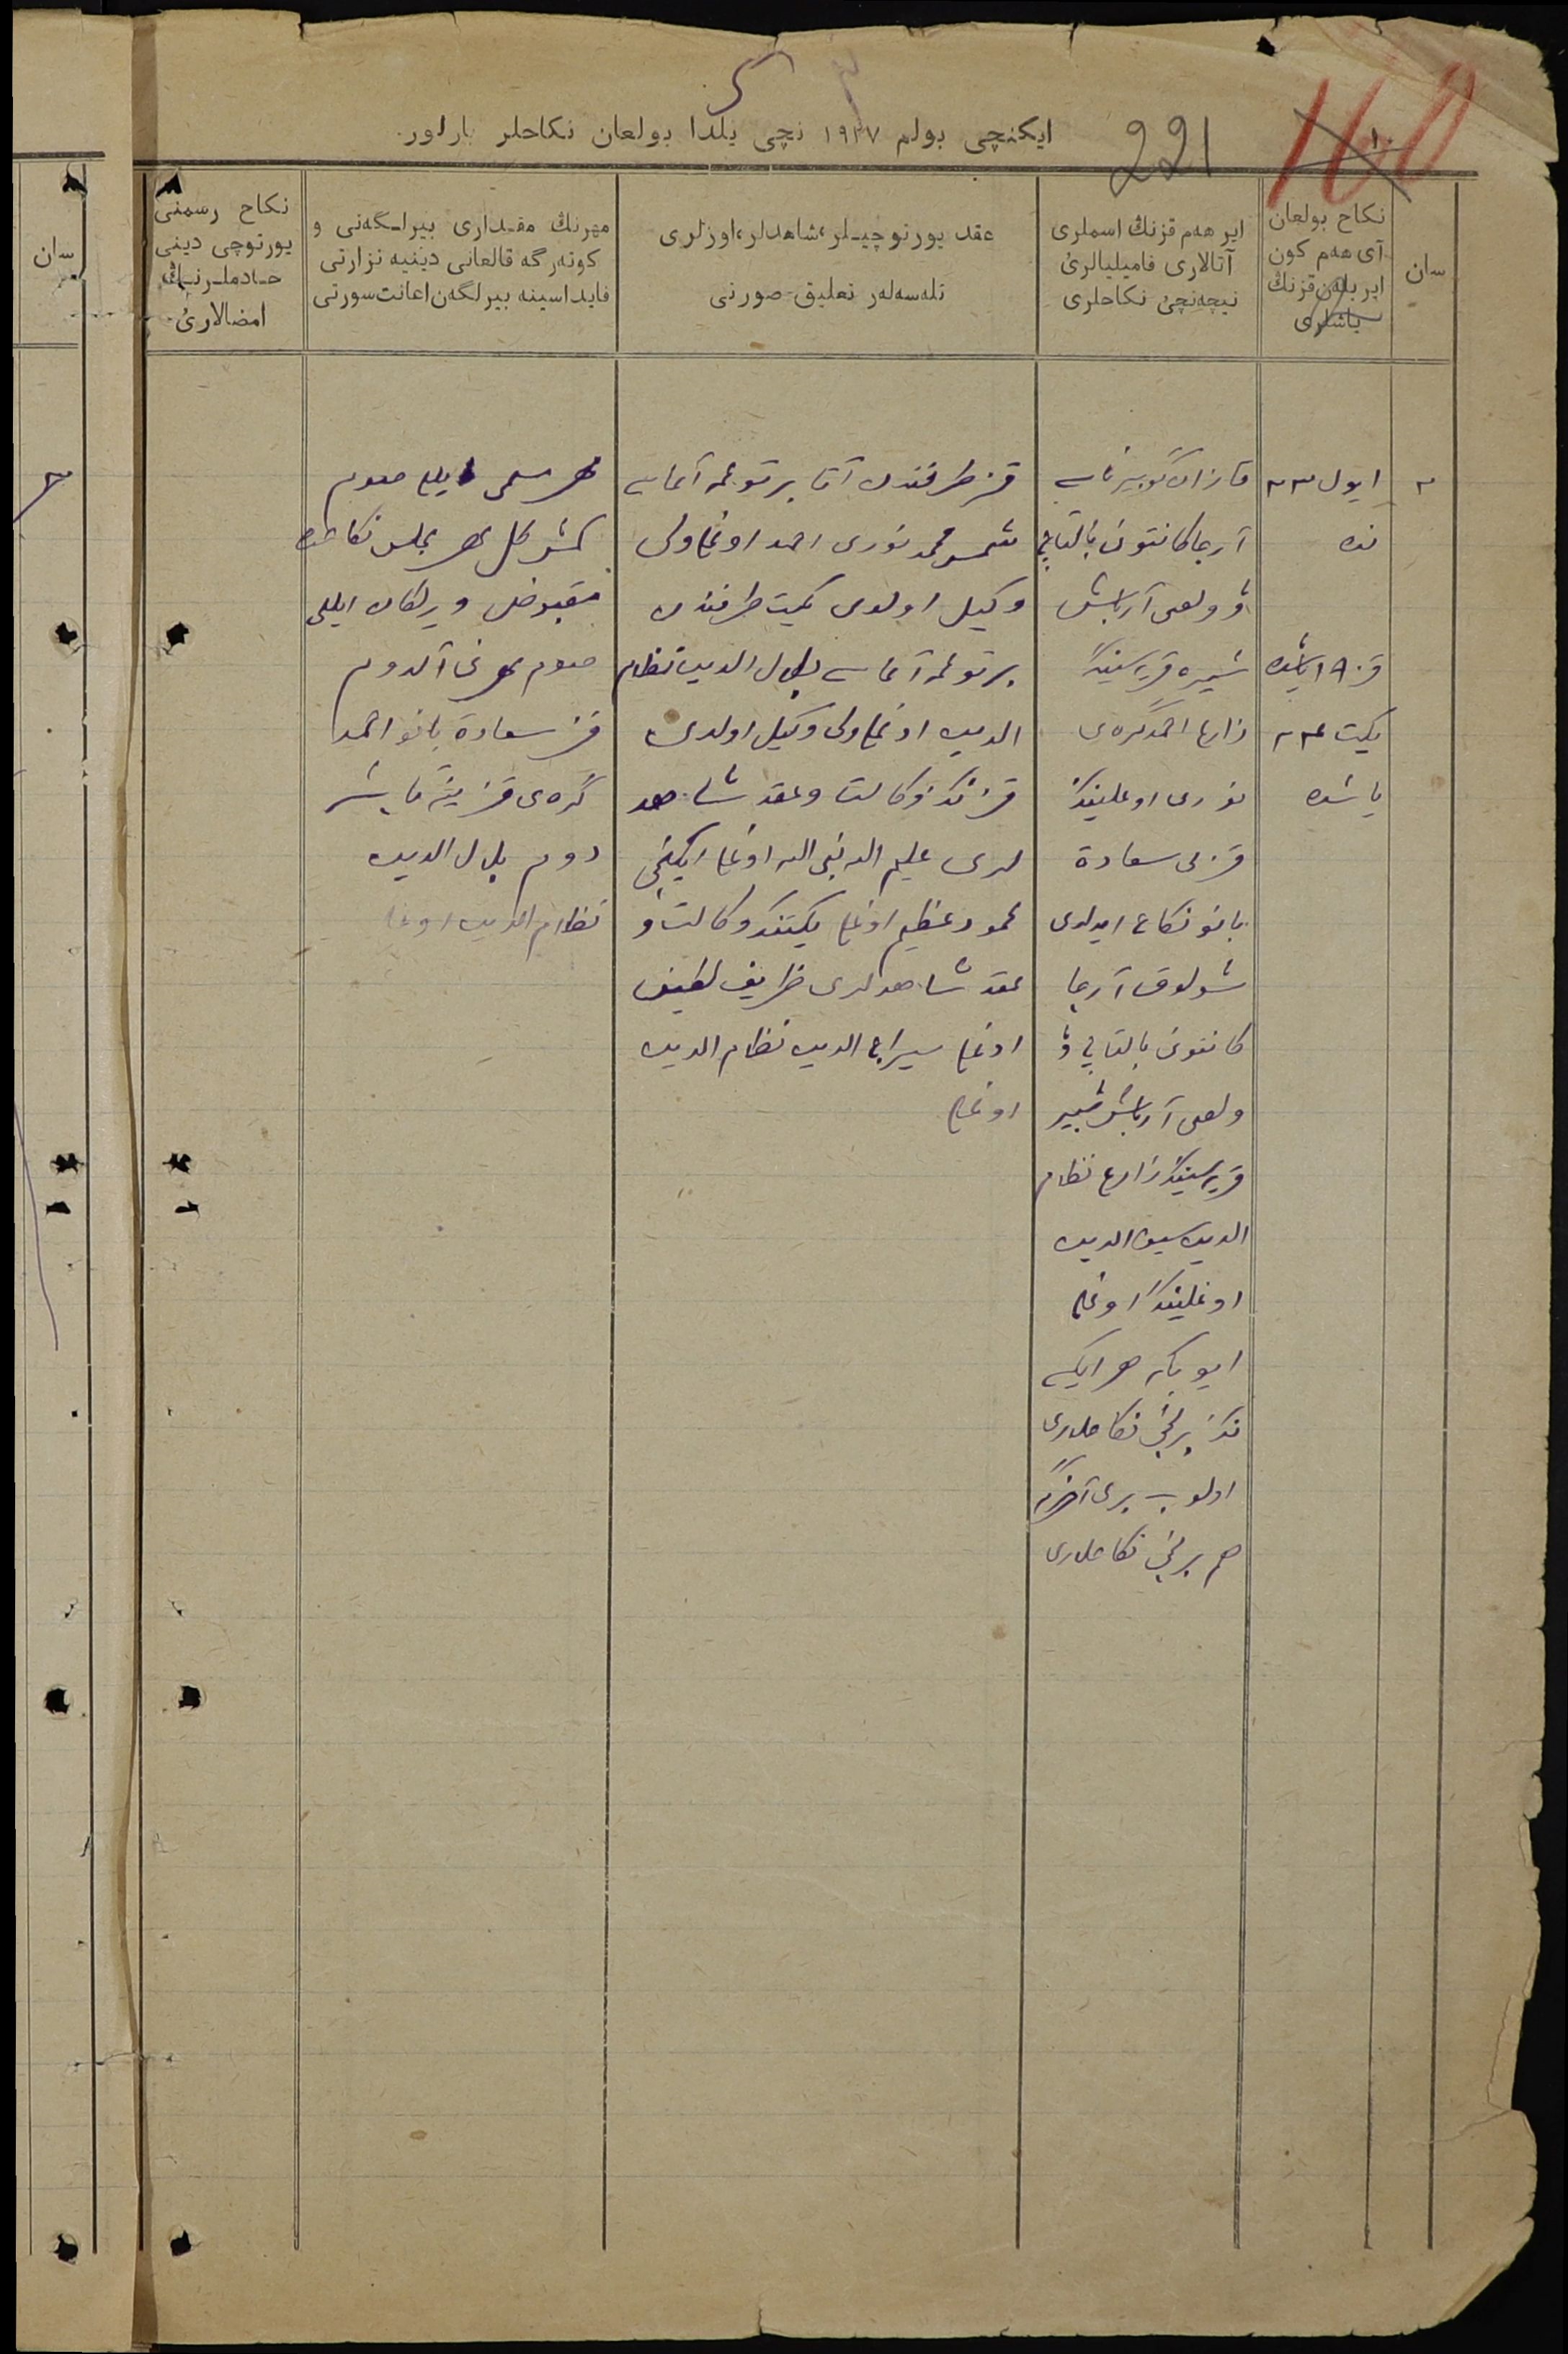 221
160
ایکنچی بولم ١٩٢٧ نچی یلدا بولعان نکاحلر بارلور.
سان
نکاح بولعان
آی هەم کون
ایر بلەن قزنڭ
یاشلری
ایر هەم قزنڭ اسملری
آتالاری فامیلیالرئ
نیچەنچئ نکاحلری
عقد یورتوچیـلر، شاهدلر، اوزلری
تلەسەلەر تعلیق صورتی
مهرنڭ مقـداری بیرلـگەنی و
کوتەرگە قالعانی دینیە نزارتی
فایداسینە بیرلگەن اعانت سورتی
نکاح رسمنی
یورتوچی دینی
خـادملـرنـڭ
امضالارئ
سان
٢
ایول ٢٣
ندە
قز ١٩ یاشدە
یکت ٢٤
یاشدە
قازان گوبیرناسی
آرچا کانتونی بالتاچ
ولصی آرباش
قریەسیندگ
زارع احمدگرەی
نوری اوغلیندڭ
قزی سعادة
بانو نکاح ایدلدی
شولوق آرچا
کانتونی بالتاچ
ولصی آرباش
قریەسیندڭ زارع نظام
الدین سیف الدین
اوغلیندڭ اوغلی
هر ایکی
برنچی نکاحلاری
اولوب بری آخرگە
هم برنچی نکاحلاری
قز طرفندن آتا بر توغمە آغاسی
شمس محمد نوری احمد اوغلی ولی
وکیل اولدی یکیت طرفندن
بر توغمە آغاسی بلال الدین نظام
الدین اوغلی ولی وکیل اولدی
قزنڭ وکالت و عقد شاهد
لری علیم اللە نبی اللە اوغلی ایکنچی
محمود عظیم اوغلی یکتنڭ وکالت و
عقد شاهدلری ظریف لطیف
اوغلی سیراج الدین نظام الدین
اوغلی
مهر مسمی ایللی صوم
کمش کل مهر مجلس نکاحدە
مقبوض ویرلگان ایللی
صوم مهرنی آلدوم
قز سعادة بانو احمد
گرەی قزی
دوم بلال الدین
نظام الدین اوغلی